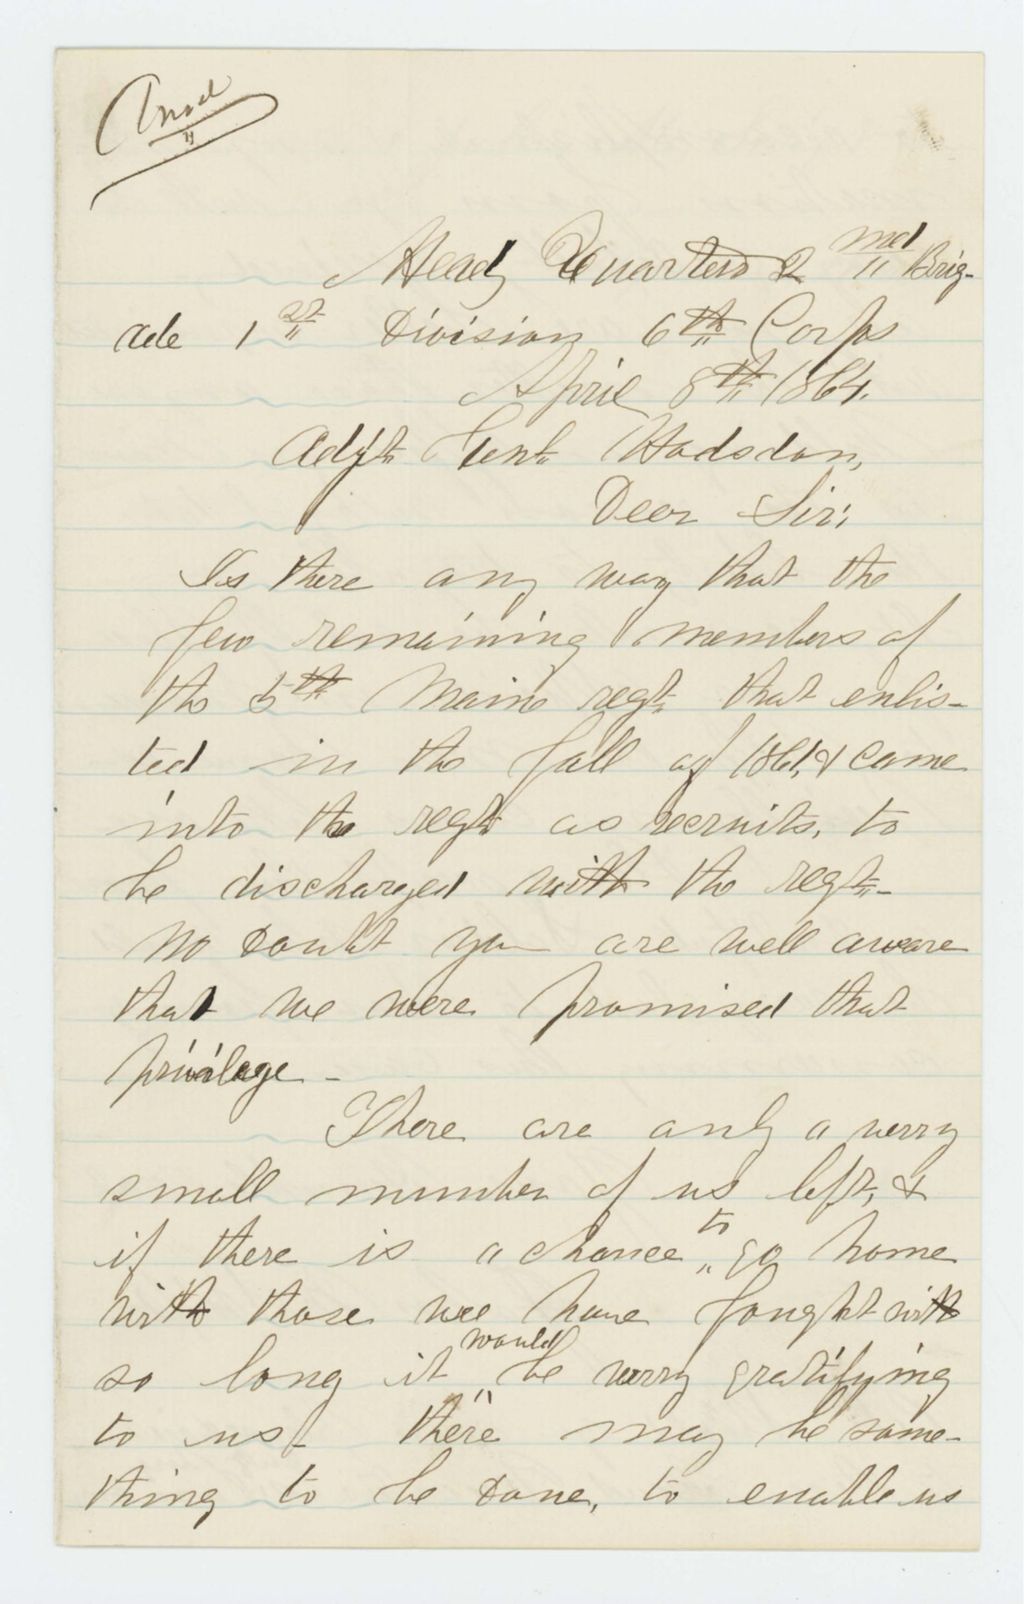 Ansd
Head Quarters 2nd Brig-
ade 1st Division 6th Corps
April 8th 1864.
Adjt Genl. Hodsdon,
Dear Sir;
Is there any way that the
few remaining members of
the 5th Maine regt. that enlis-
ted in the fall of 1861, & came
into the regt as recruits, to
be discharged with the regt.-
No doubt you are well aware
that we were promised that
privilage -
There are only a verry
small number of us left, &
if there is a chance to go home
with those wee have fought with
so long it would be verry gratifying
to us - there may be some-
thing to be done, to enable us